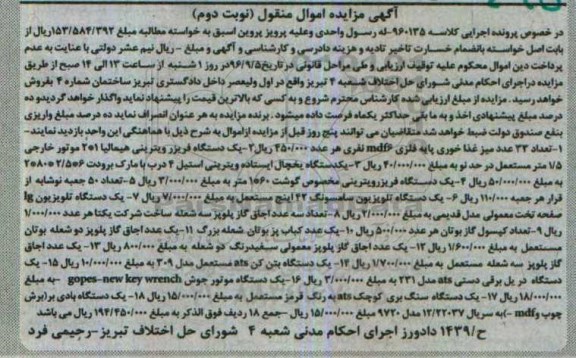 آگهی مزایده اموال منقول (نوبت دوم)
در خصوص پرونده اجرایی کلاسه ۹۶۰۱۳۵-له رسول واحدی وعلیه پرویز پروین اسبق به خواسته مطالبه مبلغ ۱۵۳/۵۸۴/۳۹۲ریال از
بابت اصل خواسته بانضمام خسارت تاخیر تادیه و هزینه دادرسی و کارشناسی و آگهی و مبلغ - ریال نیم عشر دولتی با عنایت به عدم
پرداخت دین اموال محکوم علیه توقیف ارزیابی و طی مراحل قانونی در تاریخ۹۶/۹/۵در روز ۱ شنبه از ساعت ۱۳ الی ۱۴ صبح از طریق
مزایده دراجرای احکام مدنی شورای حل اختلاف شعبه ۴ تبریز واقع در اول ولیعصر داخل دادگستری تبریز ساختمان شماره ۴ بفروش
خواهد رسید. مزایده از مبلغ ارزیابی شده کارشناس محترم شروع و به کسی که بالاترین قیمت را پیشنهاد نماید واگذار خواهد گردیدو ده
درصد مبلغ پیشنهادی اخذ و به ما بقی حداکثر یکماه فرصت داده میشود. برنده مزایده به هر عنوان انصراف نماید ده درصد مبلغ واریزی
بنفع صندوق دولت ضبط خواهد شد متقاضیان می توانند پنج روز قبل از مزایده ازاموال به شرح ذیل با هماهنگی این واحد بازدید نمایند-
۱-تعداد ۳۳ عدد میز غذا خوری پایه فلزی mdf۶ نفری هر عدد ۴۵۰/۰۰۰ ریال۲-یک دستگاه فریزر ویترینی هیمالیا ۲۰۱ موتور خارجی
۱/۵ متر مستعمل در حد نو به مبلغ ۴۰/۰۰۰/۰۰۰ ریال ۳-یکدستگاه یخچال ایستاده ویترینی استیل ۴ درب با مارک برودت ۲/۵۰۶ ۲۰۸۰۰
به مبلغ ۵۰/۰۰۰/۰۰۰ ریال ۴-یک دستگاه فریزرویترینی مخصوص گوشت ۱۰۶۰ متر به مبلغ ۳/۰۰۰/۰۰۰ ریال ۵-تعداد ۵۰ جعبه نوشابه از
قرار هر جعبه ۱۱۰/۰۰۰ ریال ۶-یک دستگاه تلویزیون سامسونگ ۴۲ اینچ مستعمل به مبلغ ۷/۰۰۰/۰۰۰ ریال ۷-یک دستگاه تلویزیون lg
صفحه تخت معمولی مدل قدیمی به مبلغ ۲/۰۰۰/۰۰۰ ریال ۸-تعداد سه عدداجاق گاز پلوپز سه شعله ساخت شرکت یکتا هر عدد ۱/۰۰۰/۰۰۰
ریال ۹-تعداد کپسول گاز بوتان هر عدد ۵۰۰/۰۰۰ ریال ۱۰-یک عدد کباب پز بوتان شعله بزرگ ۱۱-یک عدداجاق گاز پلوپز دو شعله بوتان
مستعمل به مبلغ ۱/۶۰۰/۰۰۰ ریال ۱۲-یک عدد اجاق گاز پلوپز معمولی سفیدرنگ دو شعله به مبلغ ۸۰۰/۰۰۰ ریال ۱۳-یک عدد اجاق
گاز پلوپز سه شعله مستعمل به مبلغ ۱/۷۰۰/۰۰۰ ریال ۱۴-یک دستگاه بتن کن ats مستعمل مدل ۳۰۹ به مبلغ ۱۰/۰۰۰/۰۰۰ ریال ۱۵-یک
دستگاه دریل برقی دستی ats مدل ۲۳۱ به مبلغ ۳/۰۰۰/۰۰۰ ریال ۱۶-یک دستگاه موتور جوش gopes-new key wrench -به مبلغ
۱۸/۰۰۰/۰۰۰ ریال ۱۷-یک دستگاه سنگ بری کوچک ats به رنگ قرمز مستعمل به مبلغ ۱۵/۰۰۰/۰۰۰ ریال ۱۸-یک دستگاه بادی بر(برش
چوب وmdf -)به سریال ۱۲/۲۲۰۳۷ مدل ۹۷۲۰ مبلغ ۱۵/۰۰۰/۰۰۰ ریال -جمع ۱۸ ردیف فوق الذکر به مبلغ ۱۹۴/۴۵۰/۰۰۰ ریال می باشد
ح/۱۴۳۹ دادورز اجرای احکام مدنی شعبه ۴ شورای حل اختلاف تبریز-رحیمی فرد